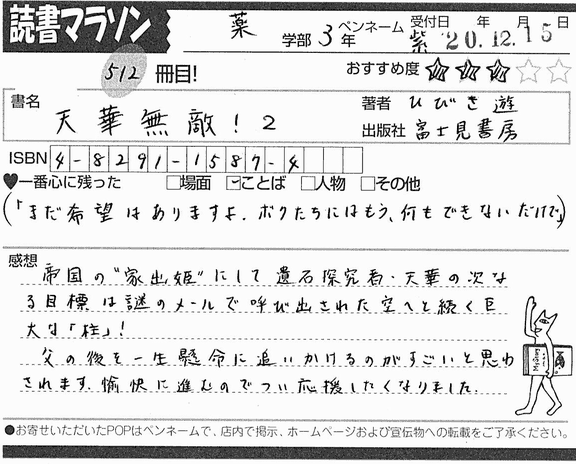 読書マラソン
薬 学部 3年 ペンネーム 紫 受付日 年 月 日
'20.12.15
512 冊目!
おすすめ度 ★★★☆☆
書名 天華無敵!2
著者 ひびき遊
出版社 富士見書房
ISBN 4-8291-1587-4
♥一番心に残った □場面 ☑ことば □人物 □その他
(「まだ希望はありますよ。ボクたちにはもう、何もできないだけで」)
感想
帝国の"家出姫"にして遺石探究者・天華の次な
る目標は謎のメールで呼び出された空へと続く巨
大な「柱」!
父の後を一生懸命に追いかけるのがすごいと思わ
されます。愉快に進むのでつい応援したくなりました。
●お寄せいただいたPOPはペンネームで、店内で掲示、ホームページおよび宣伝物への転載をご了承ください。